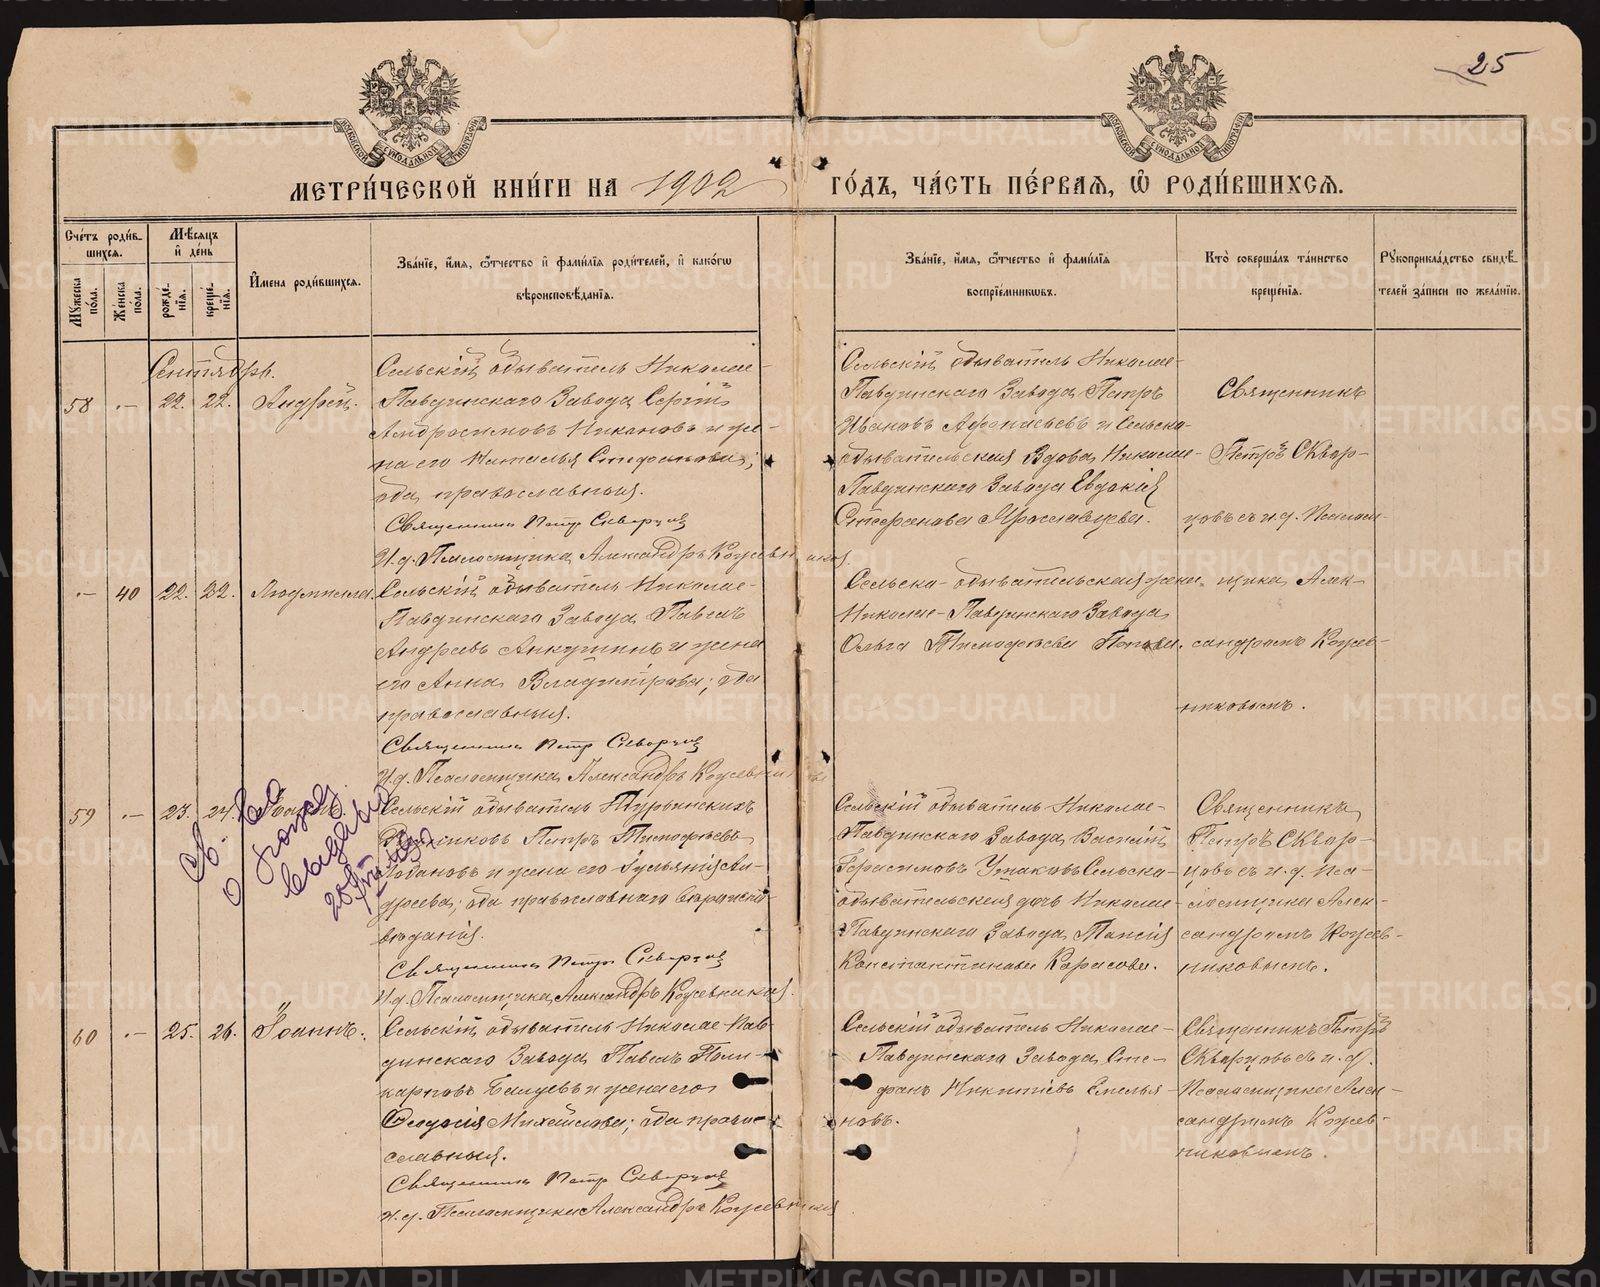 25
МЕТРИ́ЧЕСКОЙ КНИ́ГИ НА 1902
ГО́ДЪ, ЧА́СТЬ ПЕ́РВАЯ, Ѡ҆ РОДИ́ВШИХСЯ.
Сче́тъ роди́в-
шихся.
Мѣ́сяцъ
и҆ де́нь
Мꙋжеска по́ла.
Же́нска по́ла.
рожде́нїя.
креще́нїя.
И҆мена роди́вшихся.
Зва́нїе, и҆́мя, ѻ҆́тчество и҆ фами́лїя роди́телей, и҆ како́гѡ
вѣроисповѣ́данїя.
Зва́нїе, и҆́мя, ѻ҆́тчество и҆ фами́лїя
воспрїе́мниковъ.
Кто̀ соверша́лъ та́инство
креще́нїя.
Рꙋкоприкла́дство свидѣ́-
телей за́писи по жела́нїю.
Сентябрь.
58 — 22. 22. Андрей.
Сельскій обыватель Николае-
Павдинскаго Завода Сергій
Амвросимовъ Никоновъ и же-
на его Наталья Стефанова;
оба православныя.
Священникъ Петръ Скворцовъ
И.д. Псаломщика Александръ Кожевниковъ.
Сельскій обыватель Николае-
Павдинскаго Завода Петръ
Ивановъ Афонасьевъ и Сельско-
обывательская Вдова Николае-
Павдинскаго Завода Евдокія
Стефанова Ярославцева.
Священникъ
Петръ Сквор-
цовъ съ и.д. Псалом-
щика Алек-
сандромъ Кожев-
никовымъ.
— 40 22. 22. Людмилла.
Сельскій обыватель Николае-
Павдинскаго Завода Павелъ
Андреевъ Анкушинъ и жена
его Анна Владимірова; оба
православныя.
Священникъ Петръ Скворцовъ
И.д. Псаломщика Александръ Кожевниковъ
Сельско-обывательская жена
Николае-Павдинскаго Завода
Ольга Тимофеева Попова.
59 — 23. 24.
Сельскій обыватель Турьинскихъ
Рудниковъ Петръ Тимофеевъ
Лобановъ и жена его Ан-
дреева; оба православнаго вероиспо-
веданія.
Священникъ Петръ Скворцовъ
И.д. Псаломщика Александръ Кожевниковъ.
Сельскій обыватель Николае-
Павдинскаго Завода Василій
Герасимовъ Ушаковъ Сельско-
обывательская дочь Николае-
Павдинскаго Завода Таисія
Константинова Карасова.
Священникъ
Петръ Сквор-
цовъ съ и.д. Пса-
ломщика Алек-
сандромъ Кожев-
никовымъ.
60 — 25. 26. Іоаннъ.
Сельскій обыватель Николае-Пав-
динскаго Завода Павелъ Поли-
карповъ Балуевъ и жена его
Феодосія Михайлова; оба право-
славныя.
Священникъ Петръ Скворцовъ
И.д. Псаломщика Александръ Кожевниковъ
Сельскій обыватель Николае-
Павдинскаго Завода Сте-
фанъ Никитевъ Емелья-
новъ.
Священникъ Петръ
Скворцовъ съ и.д.
Псаломщика Алек-
сандромъ Кожев-
никовымъ.
METRIKI.GASO-URAL.RU